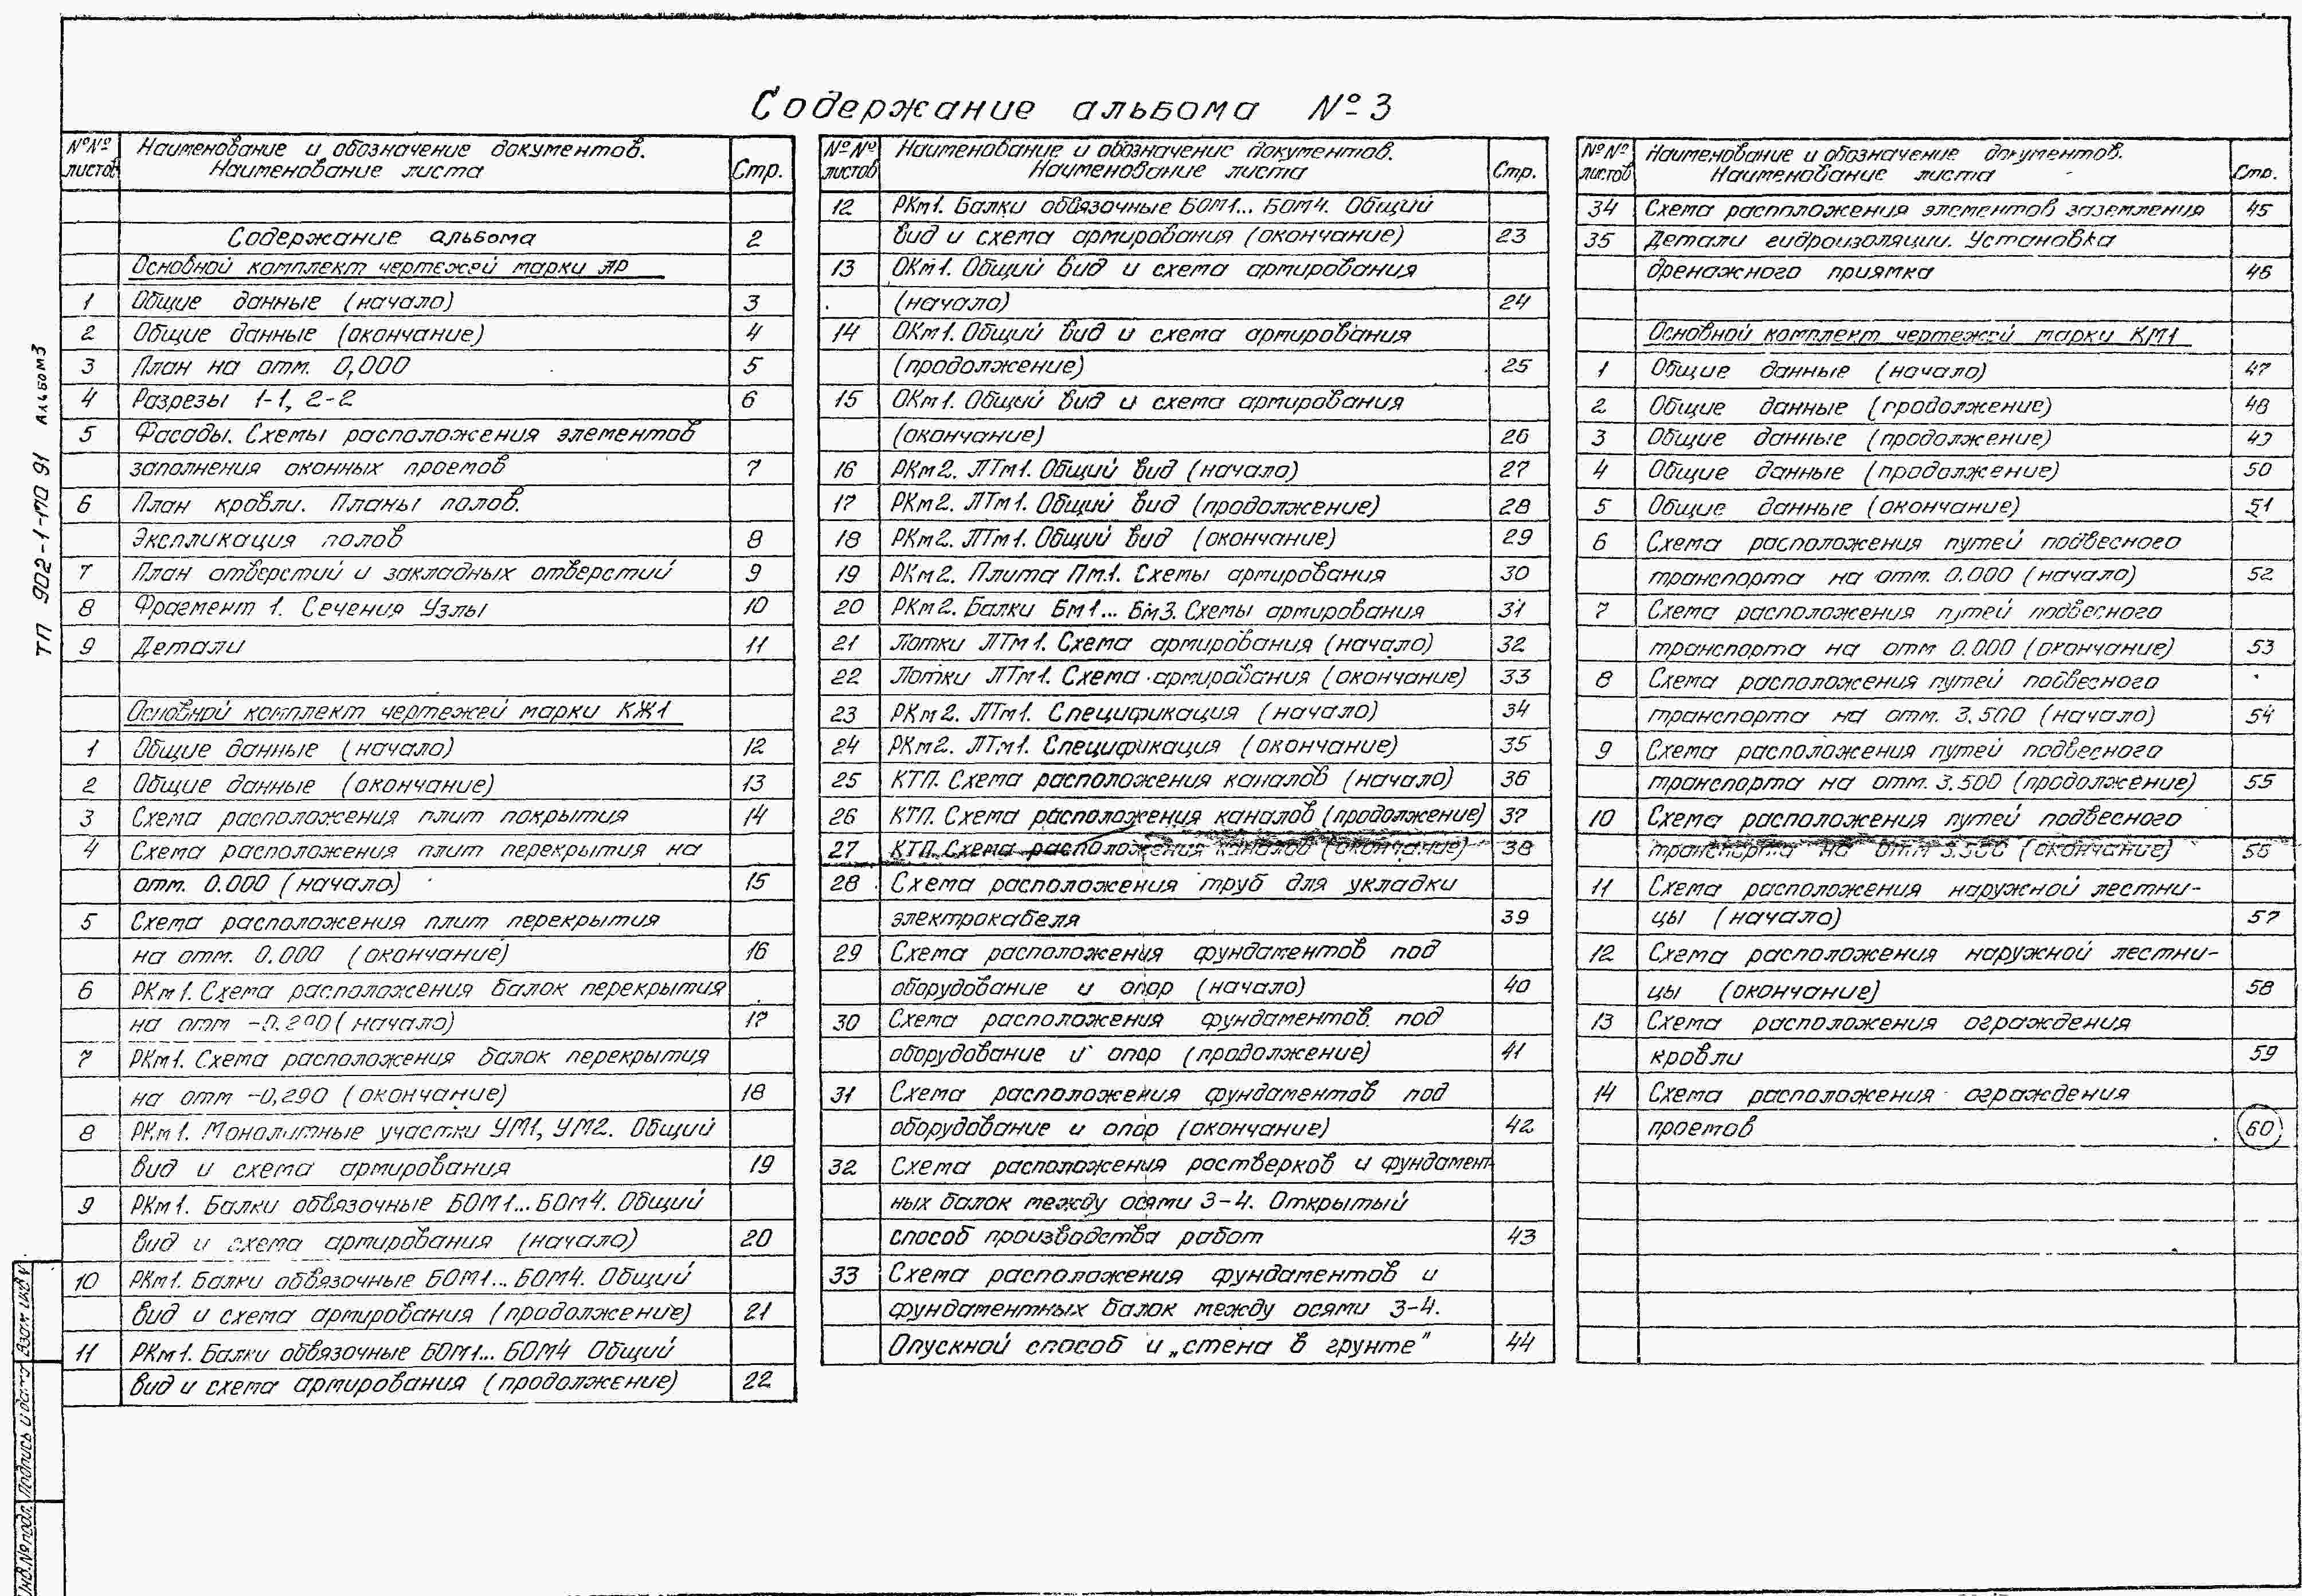 Содержание альбома № 3
ТП 902-1-170 91 Альбом 3
№№ листов Наименование и обозначение документов. Наименование листа Стр.
Содержание альбома 2
Основной комплект чертежей марки АР
1 Общие данные (начало) 3
2 Общие данные (окончание) 4
3 План на отм. 0,000 5
4 Разрезы 1-1, 2-2 6
5 Фасады. Схемы расположения элементов
заполнения оконных проемов 7
6 План кровли. Планы полов.
Экспликация полов 8
7 План отверстий и закладных отверстий 9
8 Фрагмент 1. Сечения Узлы 10
9 Детали 11
Основной комплект чертежей марки КЖ1
1 Общие данные (начало) 12
2 Общие данные (окончание) 13
3 Схема расположения плит покрытия 14
4 Схема расположения плит перекрытия на
отм. 0.000 (начало) 15
5 Схема расположения плит перекрытия
на отм. 0.000 (окончание) 16
6 РКм1. Схема расположения балок перекрытия
на отм -0.290 (начало) 17
7 РКм1. Схема расположения балок перекрытия
на отм -0,290 (окончание) 18
8 РКм1. Монолитные участки УМ1, УМ2. Общий
вид и схема армирования 19
9 РКм1. Балки обвязочные БОМ1... БОм4. Общий
вид и схема армирования (начало) 20
10 РКм1. Балки обвязочные БОМ1... БОМ4. Общий
вид и схема армирования (продолжение) 21
11 РКм1. Балки обвязочные БОМ1... БОМ4 Общий
вид и схема армирования (продолжение) 22
№№ листов Наименование и обозначение документов. Наименование листа Стр.
12 РКм1. Балки обвязочные БОМ1... БОМ4. Общий
вид и схема армирования (окончание) 23
13 ОКм1. Общий вид и схема армирования
(начало) 24
14 ОКм1. Общий вид и схема армирования
(продолжение) 25
15 ОКм1. Общий вид и схема армирования
(окончание) 26
16 РКм2. ЛТм1. Общий вид (начало) 27
17 РКм2. ЛТм1. Общий вид (продолжение) 28
18 РКм2. ЛТм1. Общий вид (окончание) 29
19 РКм2. Плита Пм1. Схемы армирования 30
20 РКм2. Балки Бм1... Бм3. Схемы армирования 31
21 Лотки ЛТм1. Схема армирования (начало) 32
22 Лотки ЛТм1. Схема армирования (окончание) 33
23 РКм2. ЛТм1. Спецификация (начало) 34
24 РКм2. ЛТм1. Спецификация (окончание) 35
25 КТП. Схема расположения каналов (начало) 36
26 КТП. Схема расположения каналов (продолжение) 37
27 КТП. Схема расположения каналов (окончание) 38
28 Схема расположения труб для укладки
электрокабеля 39
29 Схема расположения фундаментов под
оборудование и опор (начало) 40
30 Схема расположения фундаментов под
оборудование и опор (продолжение) 41
31 Схема расположения фундаментов под
оборудование и опор (окончание) 42
32 Схема расположения ростверков и фундамент
ных балок между осями 3-4. Открытый
способ производства работ 43
33 Схема расположения фундаментов и
фундаментных балок между осями 3-4.
Опускной способ и „стена в грунте" 44
№№ листов Наименование и обозначение документов. Наименование листа Стр.
34 Схема расположения элементов заземления 45
35 Детали гидроизоляции. Установка
дренажного приямка 46
Основной комплект чертежей марки КМ1
1 Общие данные (начало) 47
2 Общие данные (продолжение) 48
3 Общие данные (продолжение) 49
4 Общие данные (продолжение) 50
5 Общие данные (окончание) 51
6 Схема расположения путей подвесного
транспорта на отм. 0.000 (начало) 52
7 Схема расположения путей подвесного
транспорта на отм 0.000 (окончание) 53
8 Схема расположения путей подвесного
транспорта на отм. 3.500 (начало) 54
9 Схема расположения путей подвесного
транспорта на отм. 3.500 (продолжение) 55
10 Схема расположения путей подвесного
транспорта на отм 3.500 (окончание) 56
11 Схема расположения наружной лестни-
цы (начало) 57
12 Схема расположения наружной лестни-
цы (окончание) 58
13 Схема расположения ограждения
кровли 59
14 Схема расположения ограждения
проемов 60
Инв.№ подл. Подпись и дата Взам инв №